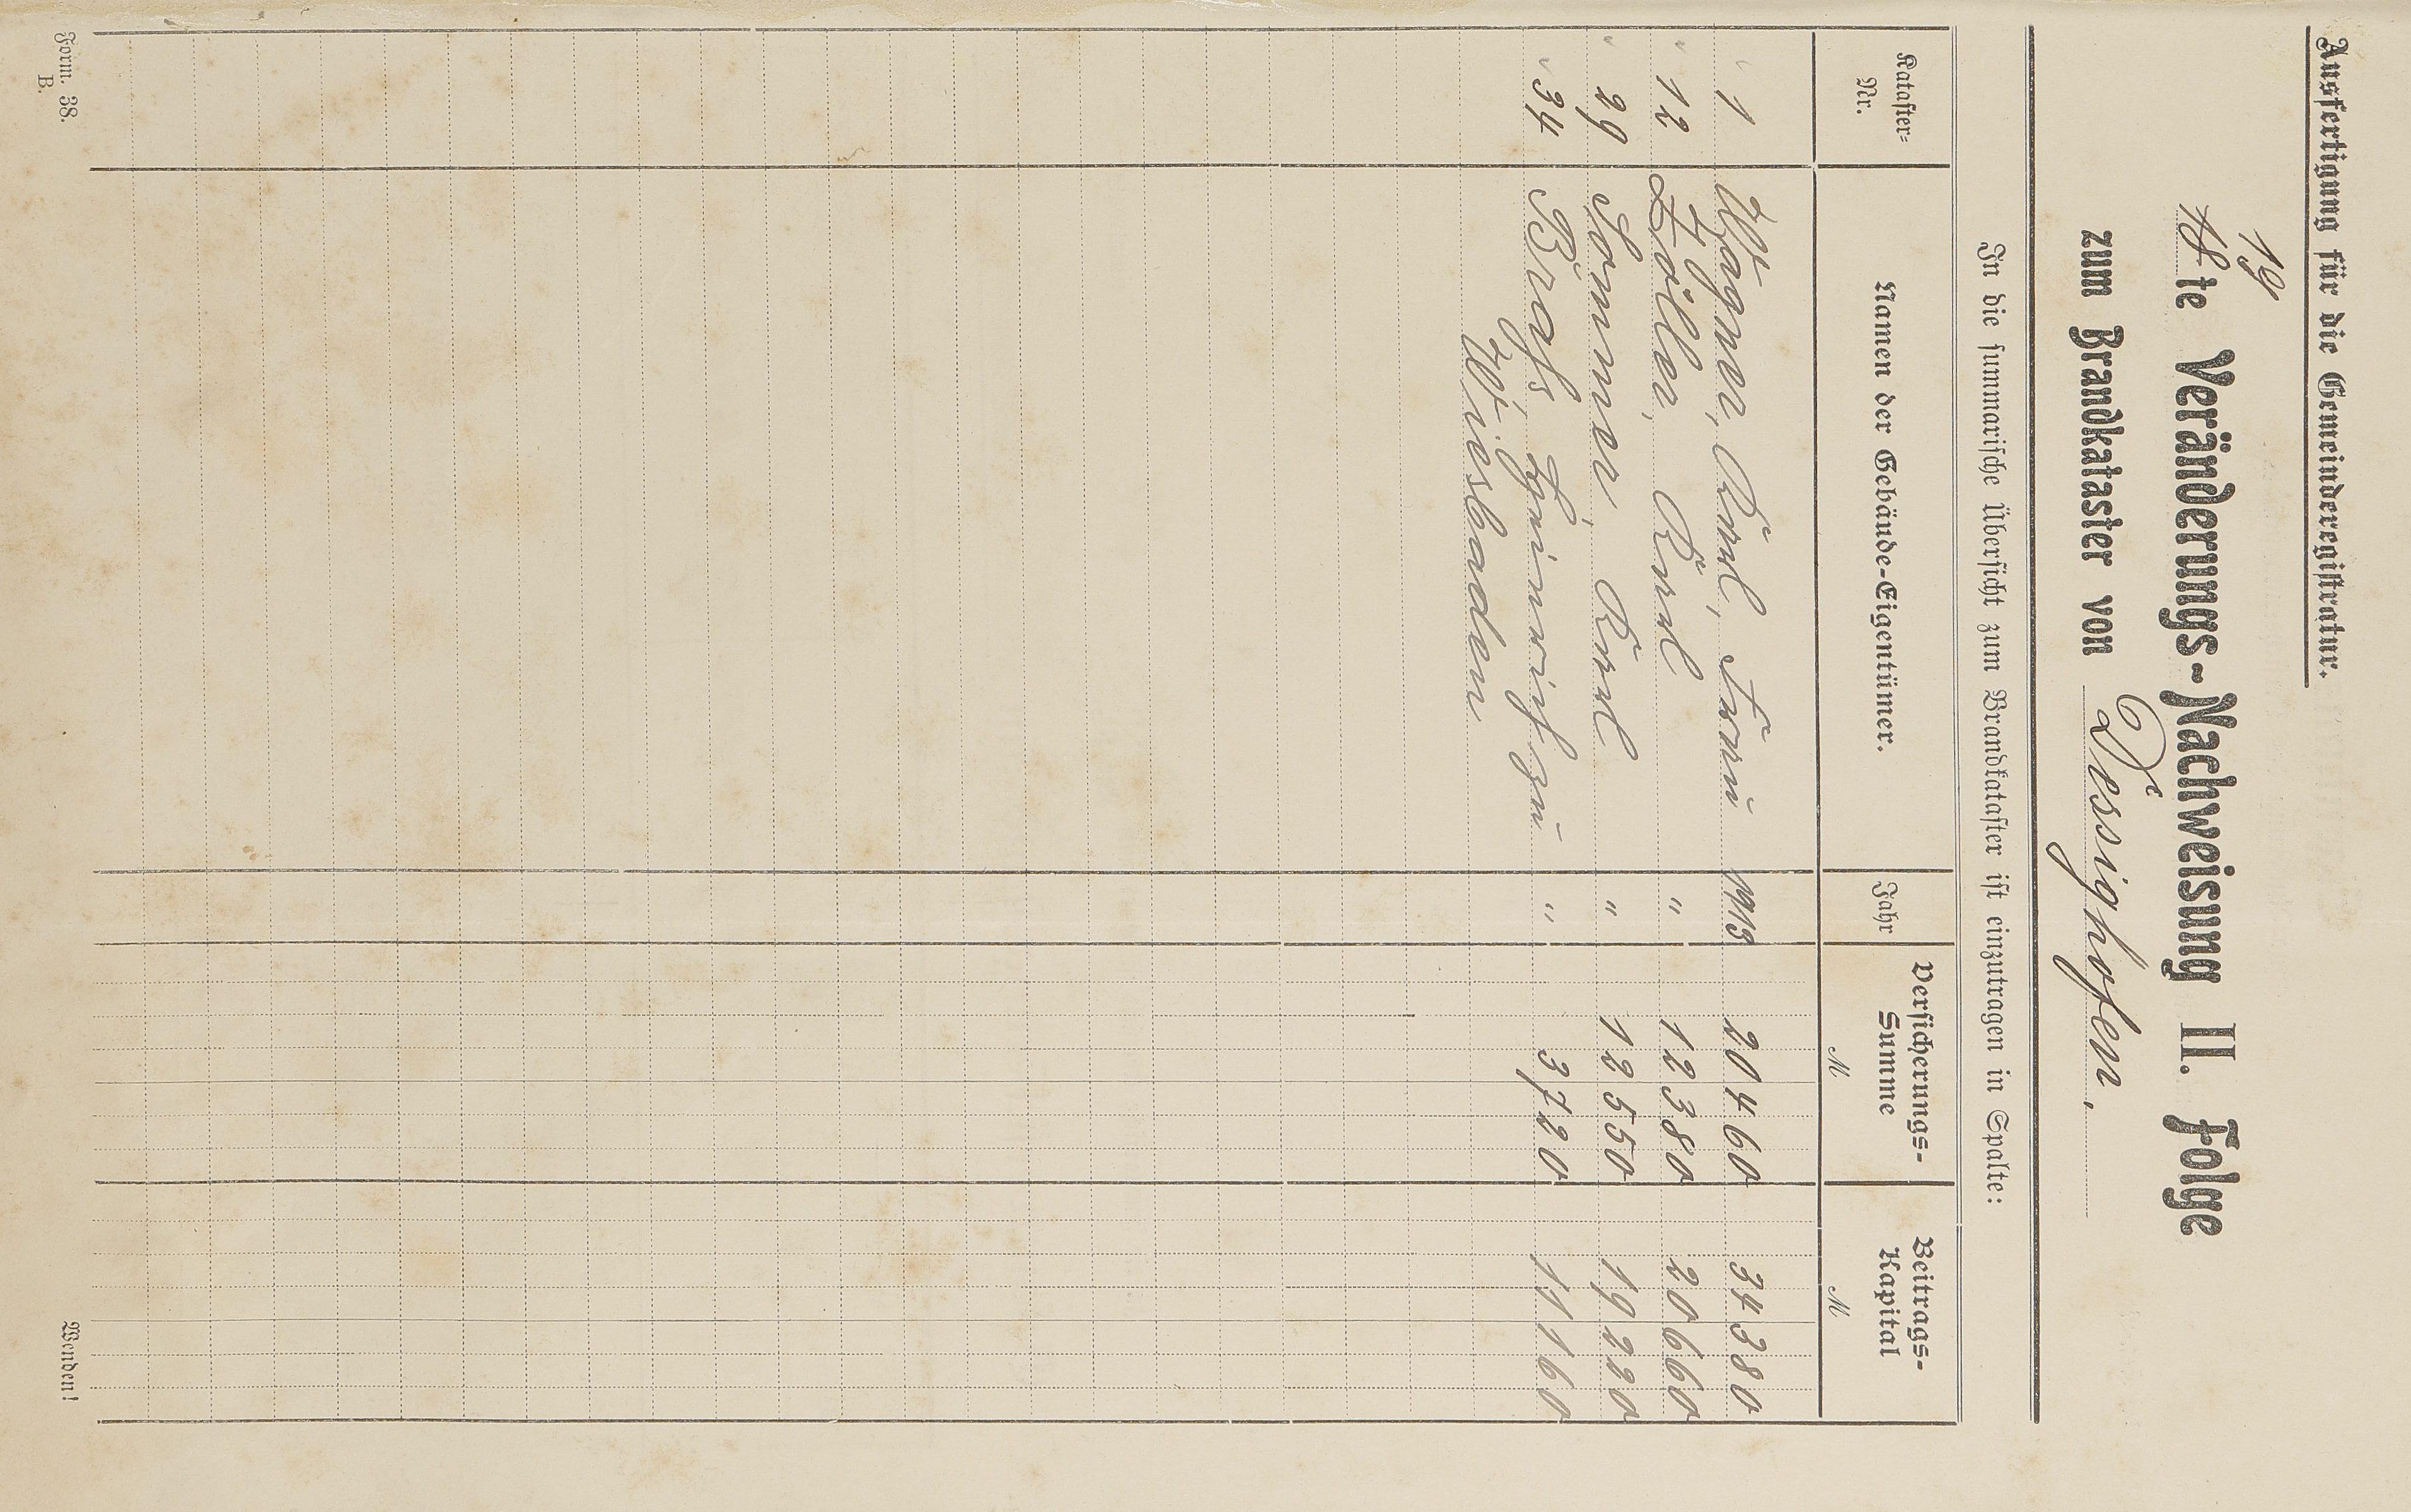 Ausfertigung für die Gemeinderegistratur.
19
18 te Veränderungs-Nachweisung II. Folge
zum Brandkataster von Dessighofen.
In die summarische Übersicht zum Brandkataster ist einzutragen in Spalte:
Kataster- Nr. Namen der Gebäude-Eigentümer. Jahr Versicherungs- Summe M Beitrags- Kapital M
" 1 Wagner, Karl, Frau 1913 20460 34380
" 12 Zöller, Karl " 12380 20660
" 29 Sommer, Karl " 12550 19220
" 34 Braß, Heinrich zu " 3720 11160
Wiesbaden
Form. 38. B. Wenden!